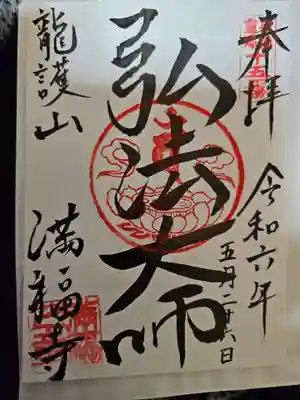 奉拝
令和六年
五月二十六日
弘法大師
龍護山
満福寺